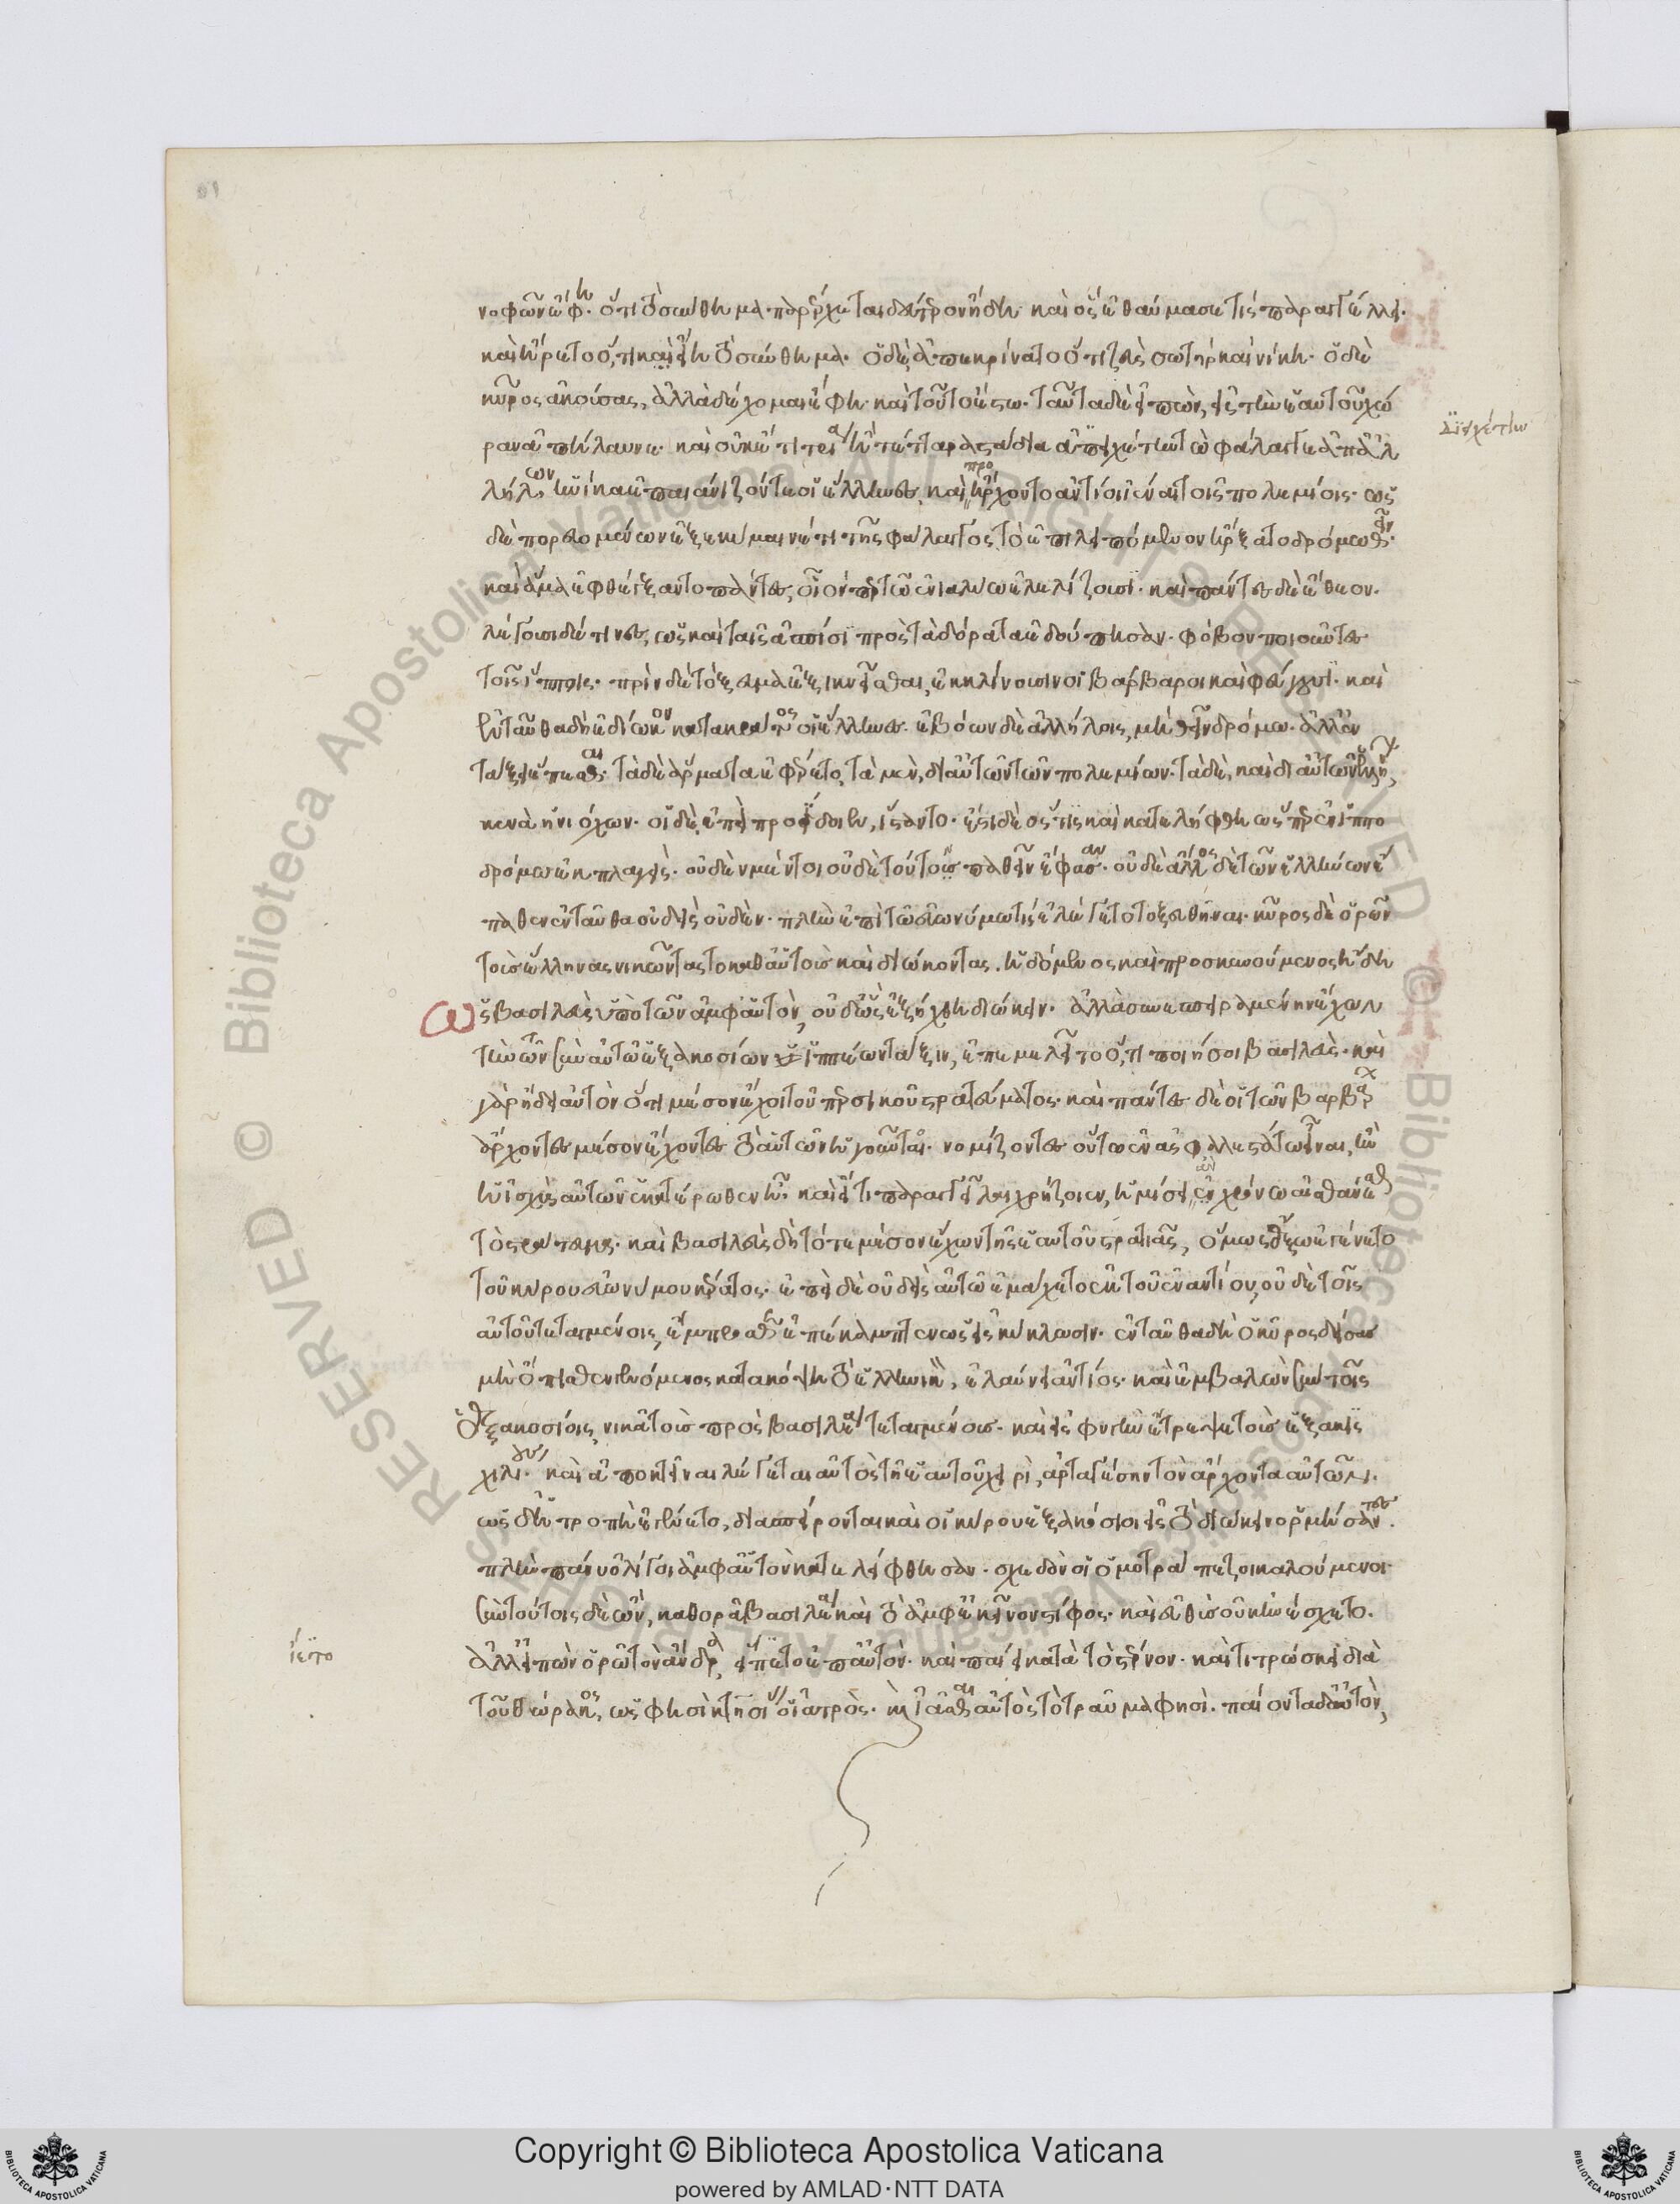 νοφῶν ἔφη. ὅτι τὸ σύνθημα παρέρχεται δεύτερον ἤδη· καὶ ὃς ἐθαύμασε τίς παραγγέλλει.
καὶ ἤρετο ὅ,τι καὶ εἴη τὸ σύνθημα. ὁ δὲ ἀπεκρίνατο ὅτι ζεὺς σωτὴρ καὶ νίκη. ὁ δὲ
κῦρος ἀκούσας, ἀλλὰ δέχομαι ἔφη καὶ τοῦτο ἔστω. ταῦτα δὲ εἰπὼν, εἰς τὴν ἑαυτοῦ χώ
ραν ἀπήλαυνε. καὶ οὐκέτι τρία ἢ τέτταρα στάδια ἀπειχέτην τὼ φάλαγγε ἀπ' ἀλ
διειχέτην
λήλων ἡνίκα ἐπαιάνιζόν τε οἱ ἕλληνες, καὶ προήρχοντο ἀντίοι ἰέναι τοῖς πολεμίοις. ὡς
δὲ πορευομένων ἐξεκύμαινέ τι τῆς φάλαγγος τὸ ἐπιλειπόμενον ἤρξατο δρόμω θεῖν.
καὶ ἅμα ἐφθέγξαντο πάντες, οἷόν περ τῶ ἐνυαλίω ἐλελίζουσι. καὶ πάντες δὲ ἔθεον.
λέγουσι δέ τινες, ὡς καὶ ταῖς ἀσπίσι πρὸς τὰ δόρατα ἐδούπησαν. φόβον ποιοῦντες
τοῖς ἵπποις. πρὶν δὲ τόξευμα ἐξικνεῖσθαι, ἐκκλίνουσιν οἱ βάρβαροι καὶ φεύγουσι. καὶ
ἐνταῦθα δὴ ἐδίωκον κατὰ κράτος οἱ ἕλληνες. ἐβόων δὲ ἀλλήλοις, μὴ θεῖν δρόμω. ἀλλ' ἐν
τάξει ἕπεσθαι. τὰ δὲ ἅρματα ἐφέρετο, τὰ μὲν, δι' αὐτῶν τῶν πολεμίων. τὰ δὲ, καὶ δι' αὐτῶν τῶν ἑλλήνων,
κενὰ ἡνιόχων. οἱ δὲ, ἐπεὶ προΐδοιεν, ἵσταντο. ἔστι δὲ ὅς τις καὶ κατελήφθη ὥσπερ ἐν ἱππο
δρόμω ἐκπλαγείς. οὐδὲν μέντοι οὐδὲ τοῦτον παθεῖν ἔφασαν. οὐδὲ ἄλλος δὲ τῶν ἑλλήνων ἔ
παθεν ἐνταῦθα οὐδεὶς οὐδὲν. πλὴν ἐπὶ τῶ εὐωνύμω τίς ἐλέγετο τοξευθῆναι. κῦρος δὲ ὁρῶν
τοὺς ἕλληνας νικῶντας τὸ καθ' αὑτοὺς καὶ διώκοντας. ἡδόμενος καὶ προσκυνούμενος ἤδη
ὡς βασιλεὺς ὑπὸ τῶν ἀμφ' αὐτὸν, οὐδ' ὣς ἐξήχθη διώκειν. ἀλλὰ συνεσπειραμένην ἔχων
τὴν τῶν σὺν αὐτῶ ἑξακοσίων ἱππέων τάξιν, ἐπεμελεῖτο ὅ,τι ποιήσοι βασιλεὺς. καὶ
γὰρ ἤδει αὐτὸν ὅτι μέσον ἔχοι τοῦ περσικοῦ στρατεύματος. καὶ πάντες δὲ οἱ τῶν βαρβάρων
ἄρχοντες μέσον ἔχοντες τὸ αὑτῶν ἡγοῦνται. νομίζοντες οὕτω ἐν ἀσφαλεστάτω εἶναι, ἢν
ἡ ἰσχὺς αὐτῶν ἑκατέρωθεν ἦ· καὶ εἴ τι παραγγεῖλαι χρήζοιεν, ἡμίσει ἂν χρόνω αἰσθάνεσθαι
τὸ στράτευμα. καὶ βασιλεὺς δὴ τότε μέσον ἔχων τῆς ἑαυτοῦ στρατιᾶς, ὅμως ἔξω ἐγένετο
τοῦ κύρου εὐωνύμου κέρατος. ἐπεὶ δὲ οὐδεὶς αὐτῶ ἐμάχετο ἐκ τοῦ ἐναντίου, οὐδὲ τοῖς
αὐτοῦ τεταγμένοις ἔμπροσθεν ἐπέκαμπτεν ὡς εἰς κύκλωσιν. ἐνταῦθα δὴ ὁ κῦρος δείσας
μὴ ὄπισθεν γενόμενος κατακόψη τὸ ἑλληνικὸν, ἐλαύνει ἀντίος. καὶ ἐμβαλὼν σὺν τοῖς
ἑξακοσίοις, νικᾶ τοὺς πρὸς βασιλέα τεταγμένους. καὶ εἰς φυγὴν ἔτρεψε τοὺς ἑξακισ
χιλίους. καὶ ἀποκτεῖναι λέγεται αὐτὸς τῆ ἑαυτοῦ χειρὶ, ἀρταγέρσην τὸν ἄρχοντα αὐτῶν.
ὡς δ' ἡ τροπὴ ἐγένετο, διασπείρονται καὶ οἱ κύρου ἑξακόσιοι εἰς τὸ διώκειν ὁρμήσαντες.
πλὴν πάνυ ὀλίγοι ἀμφ' αὐτὸν κατελείφθησαν. σχεδὸν οἱ ὁμοτράπεζοι καλούμενοι.
σὺν τούτοις δὲ ὢν, καθορᾶ βασιλέα καὶ τὸ ἀμφ' ἐκεῖνον στῖφος. καὶ εὐθὺς οὐκ ἠνέσχετο.
ἀλλ' εἰπὼν ὁρῶ τὸν ἄνδρα, ἵετο ἐπ' αὐτὸν. καὶ παίει κατὰ τὸ στέρνον. καὶ τιτρώσκει διὰ
ἵετο
τοῦ θώρακος, ὥς φησὶ κτησίας ὁ ἰατρὸς. καὶ ἰᾶσθαι αὐτὸς τὸ τραῦμα φησὶ. παίοντα δ' αὐτὸν,
© Biblioteca Apostolica Vaticana
Copyright © Biblioteca Apostolica Vaticana
powered by AMLAD·NTT DATA